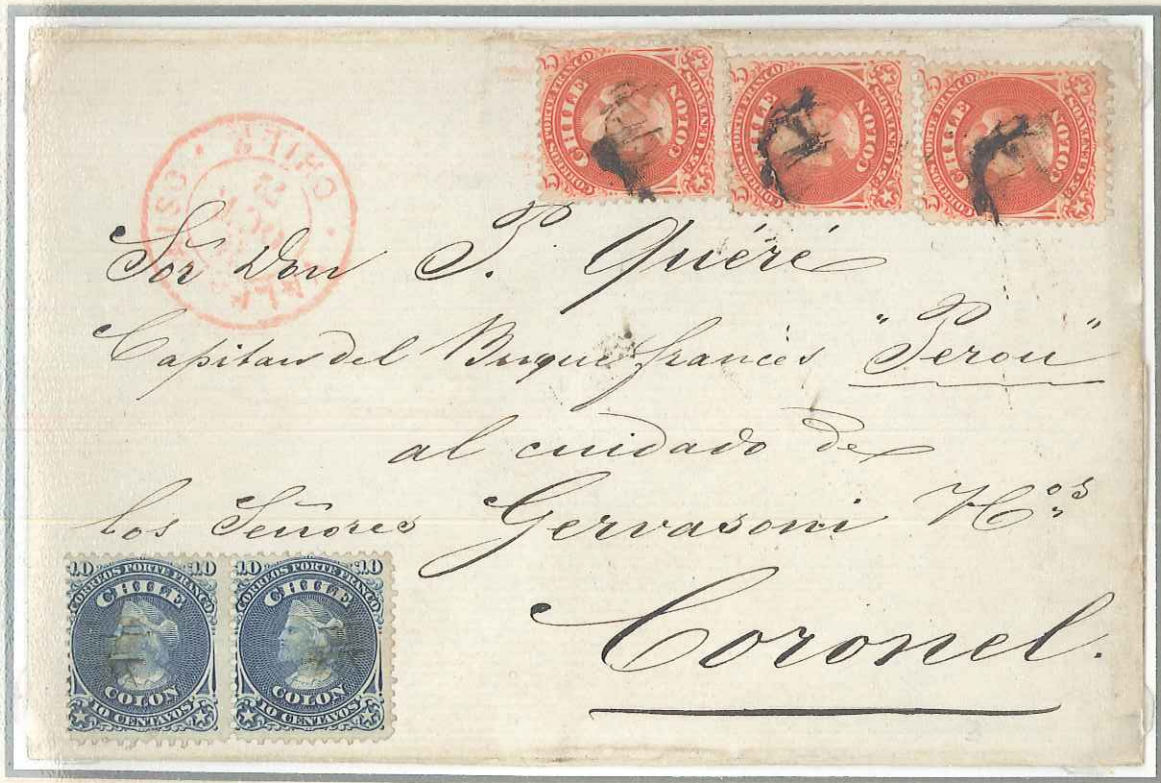 5 CORREOS PORTE FRANCO 5
CHILE
COLON
5 CENTAVOS 5
CORREOS PORTE FRANCO
CHILE
COLON
5 CENTAVOS
CORREOS PORTE FRANCO
CHILE
COLON
5 CENTAVOS
CHILE
Sor Don P. Quéré
Capitan del Buque francés "Perou"
al cuidado de
los Señores Gervasoni H.os
Coronel.
10 CORREOS PORTE FRANCO 10
CHILE
COLON
10 CENTAVOS
10 CORREOS PORTE FRANCO 10
CHILE
COLON
10 CENTAVOS